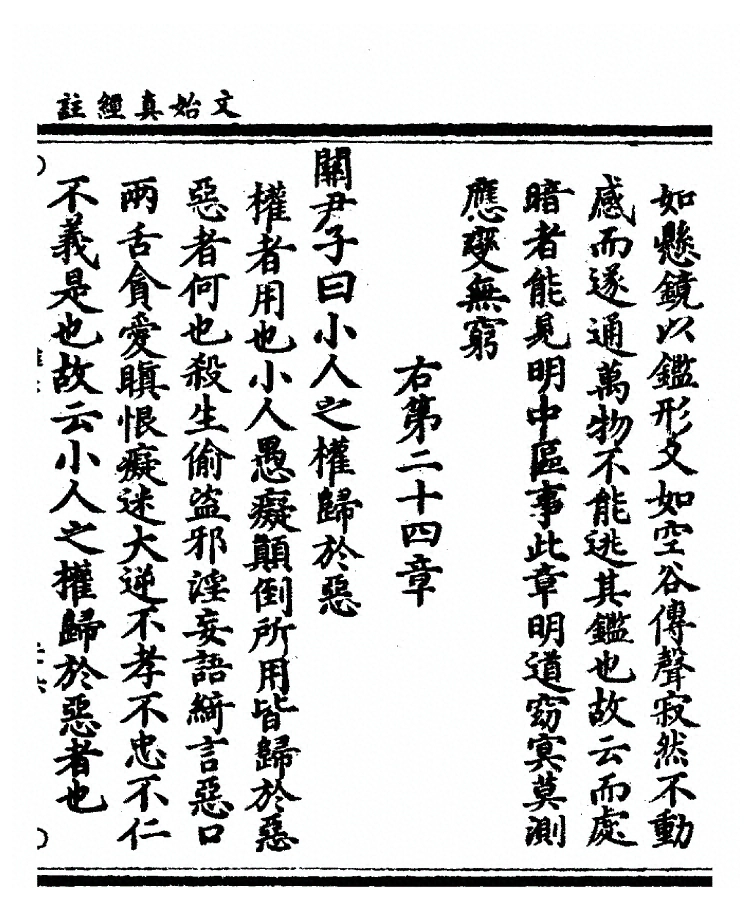 文始真經註
如懸鏡以鑑形又如空谷傳聲寂然不動
感而遂通萬物不能逃其鑑也故云而處
暗者能見明中區事此章明道窈冥莫測
應變無窮
右第二十四章
關尹子曰小人之權歸於惡
權者用也小人愚癡顛倒所用皆歸於惡
惡者何也殺生偷盜邪淫妄語綺言惡口
兩舌貪愛瞋恨癡迷大逆不孝不忠不仁
不義是也故云小人之權歸於惡者也